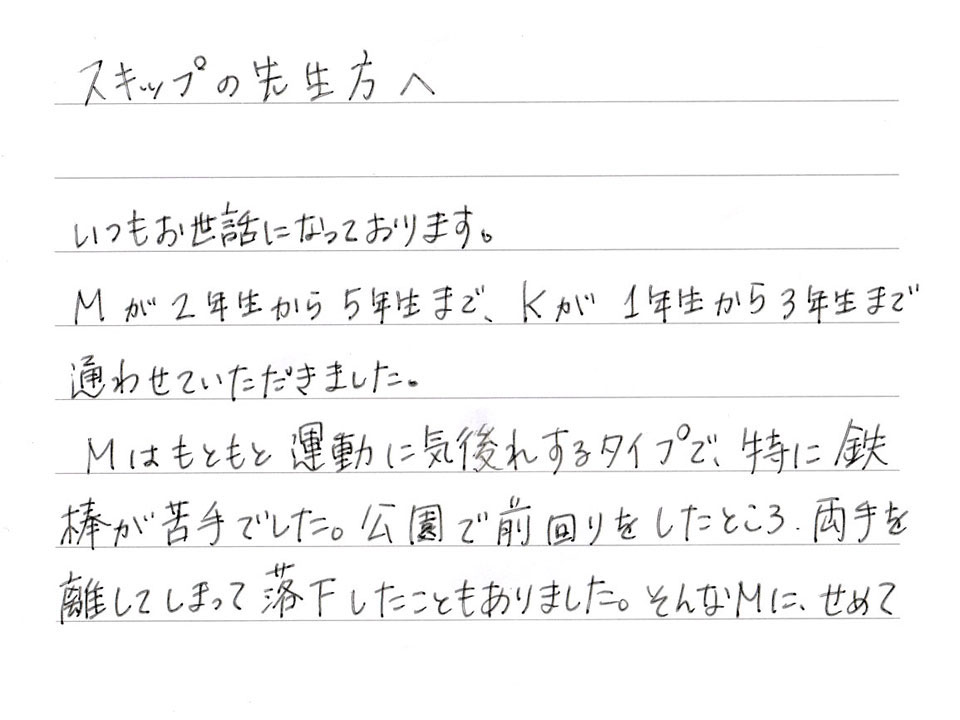 スキップの先生方へ
いつもお世話になっております。
Mが2年生から5年生まで、Kが1年生から3年生まで
通わせていただきました。
Mはもともと運動に気後れするタイプで、特に鉄
棒が苦手でした。公園で前回りをしたところ、両手を
離してしまって落下したこともありました。そんなMに、せめて